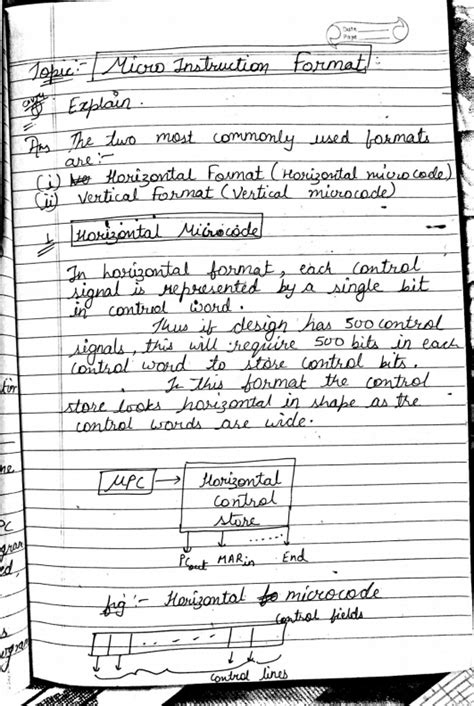 Date
Page
Topic:- Micro Instruction Format
Explain.
Ans The two most commonly used formats
are:-
(i) Horizontal Format (Horizontal microcode)
(ii) Vertical Format (Vertical microcode)
1 Horizontal Microcode
In horizontal format, each control
signal is represented by a single bit
in control word.
Thus if design has 500 control
signals, this will require 500 bits in each
control word to store control bits.
In this format the control
store looks horizontal in shape as the
control words are wide.
MPC → Horizontal
control
store
PCout MARin End
fig:- Horizontal microcode
control fields
control lines